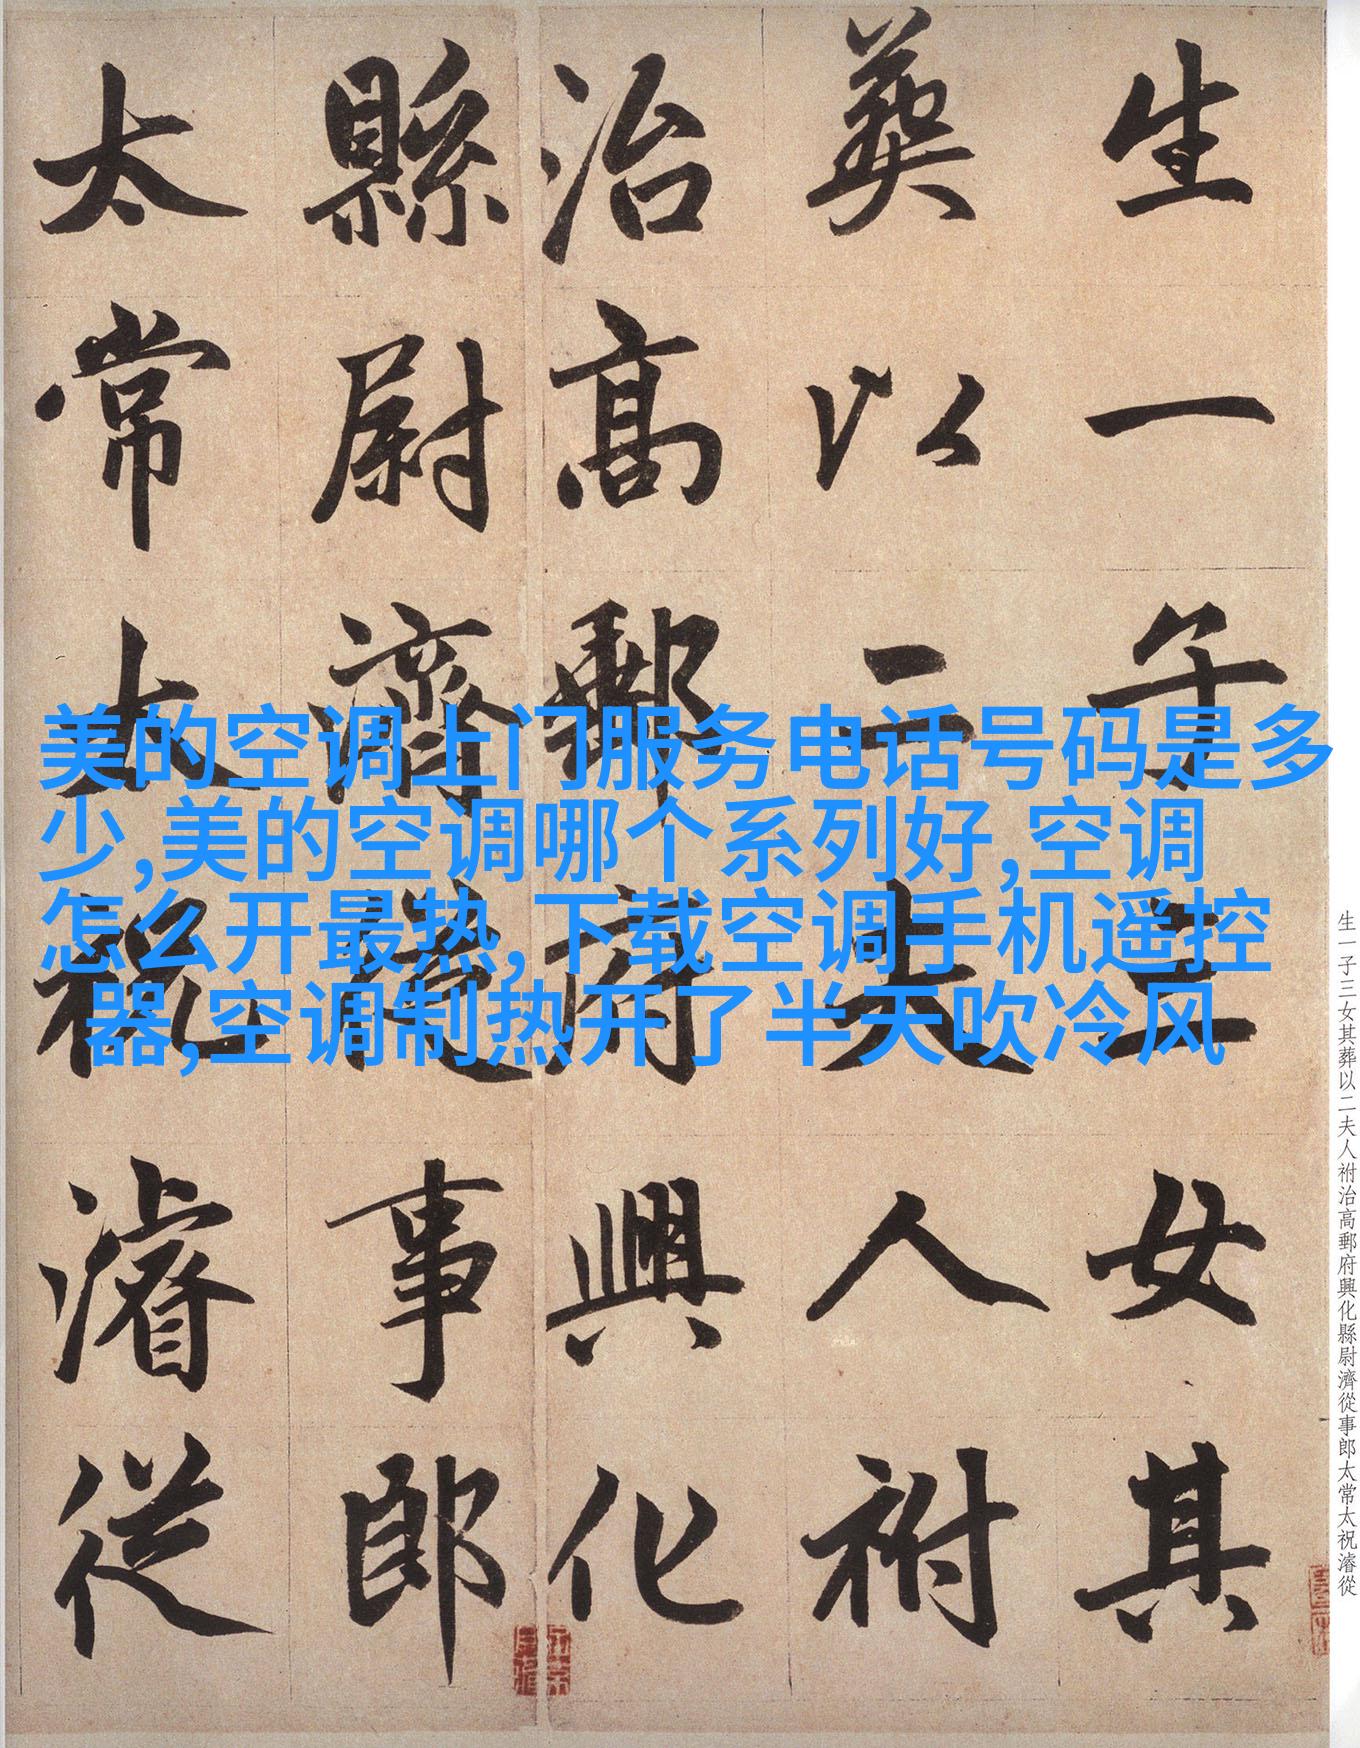 生一子三女其
葬以二夫人祔
治高郵府興化
縣尉濟從事郎
太常太祝濬從
美的空调上门服务电话号码是多
少,美的空调哪个系列好,空调
怎么开最热,下载空调手机遥控
器,空调制热开了半天吹冷风
生一子三女其葬以二夫人祔治高郵府興化縣尉濟從事郎太常太祝濬從